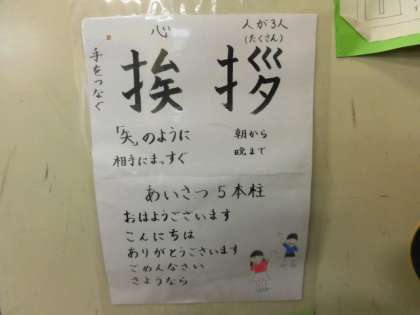 心
人が3人
(たくさん)
手をつなぐ
挨拶
「矢」のように
相手にまっすぐ
朝から
晩まで
あいさつ5本柱
おはようございます
こんにちは
ありがとうございます
ごめんなさい
さようなら